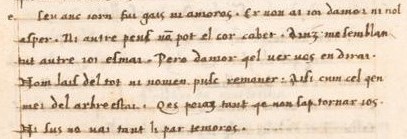 e. Seu anc iorn fui gais ni amoros. Er non ai ioi damor ni nol
esper. Ni autre pens nō pot el cor caber. Ainz me semblan
tut autre ioi esmai. Pero damor qel ver vos en dirai.
Nom lais del tot ni nomen pusc remaner. Aisi cum cel qen
mei del arbre estai. Qes poiaz tant qe non sap tornar ios.
Ni sus no vai tant li par temoros.